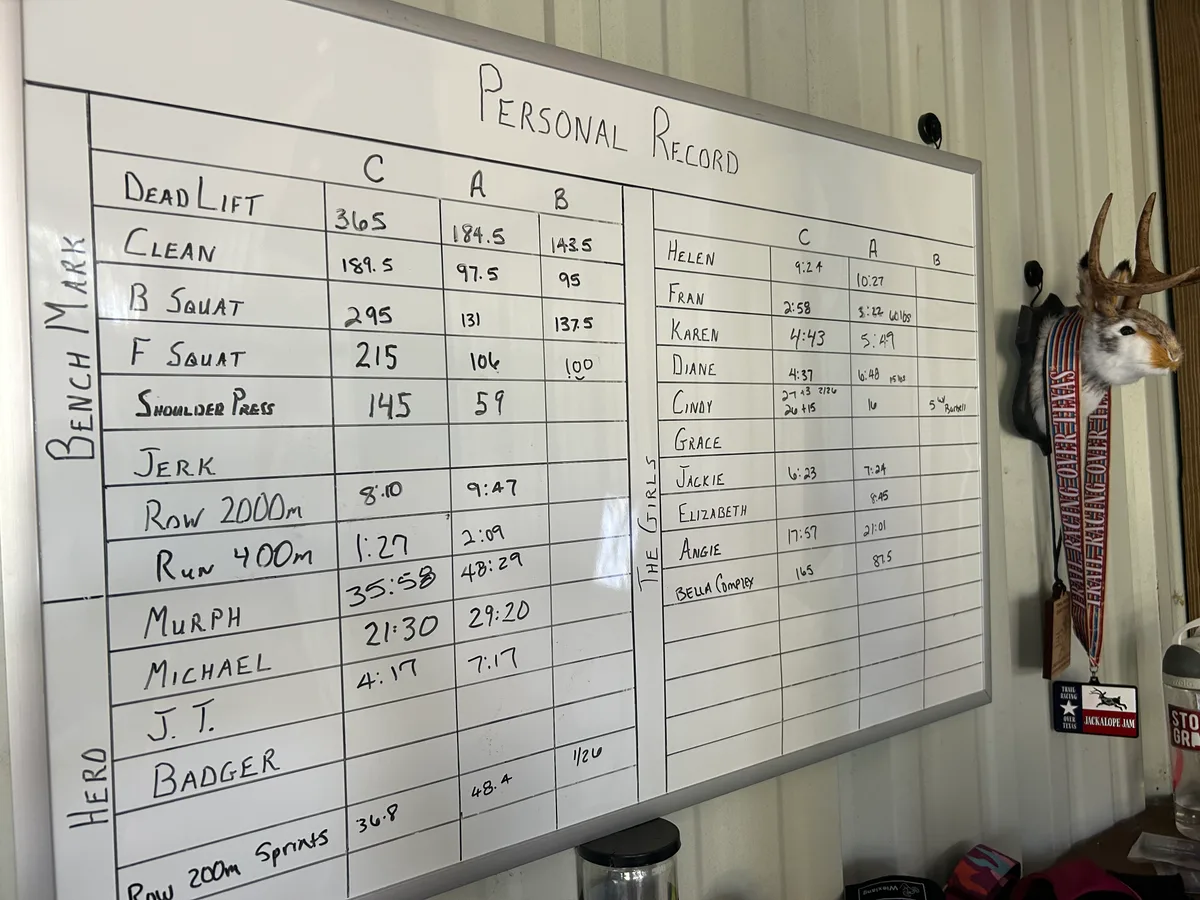 PERSONAL RECORD
BENCH MARK
C A B
DEADLIFT 365 184.5 143.5
CLEAN 189.5 97.5 95
B SQUAT 295 131 137.5
F SQUAT 215 106 100
SHOULDER PRESS 145 59
JERK
ROW 2000m 8:10 9:47
RUN 400m 1:27 2:09
HERO
MURPH 35:58 48:29
MICHAEL 21:30 29:20
J.T. 4:17 7:17
BADGER
1/26
Row 200m Sprints 36.8 48.4
THE GIRLS
C A B
HELEN 9:24 10:27
FRAN 2:58 5:22 60lbs
KAREN 4:43 5:49
DIANE 4:37 6:48
CINDY 27+3 2/26 26+15 16 5 w/ Barbell
GRACE
JACKIE 6:23 7:24
ELIZABETH 8:45
ANGIE 17:57 21:01
BELLA COMPLEX 165 87.5
TRAIL RACING OVER TEXAS
TRAIL RACING OVER TEXAS
TRAIL
RACING
OVER
TEXAS
JACKALOPE JAM